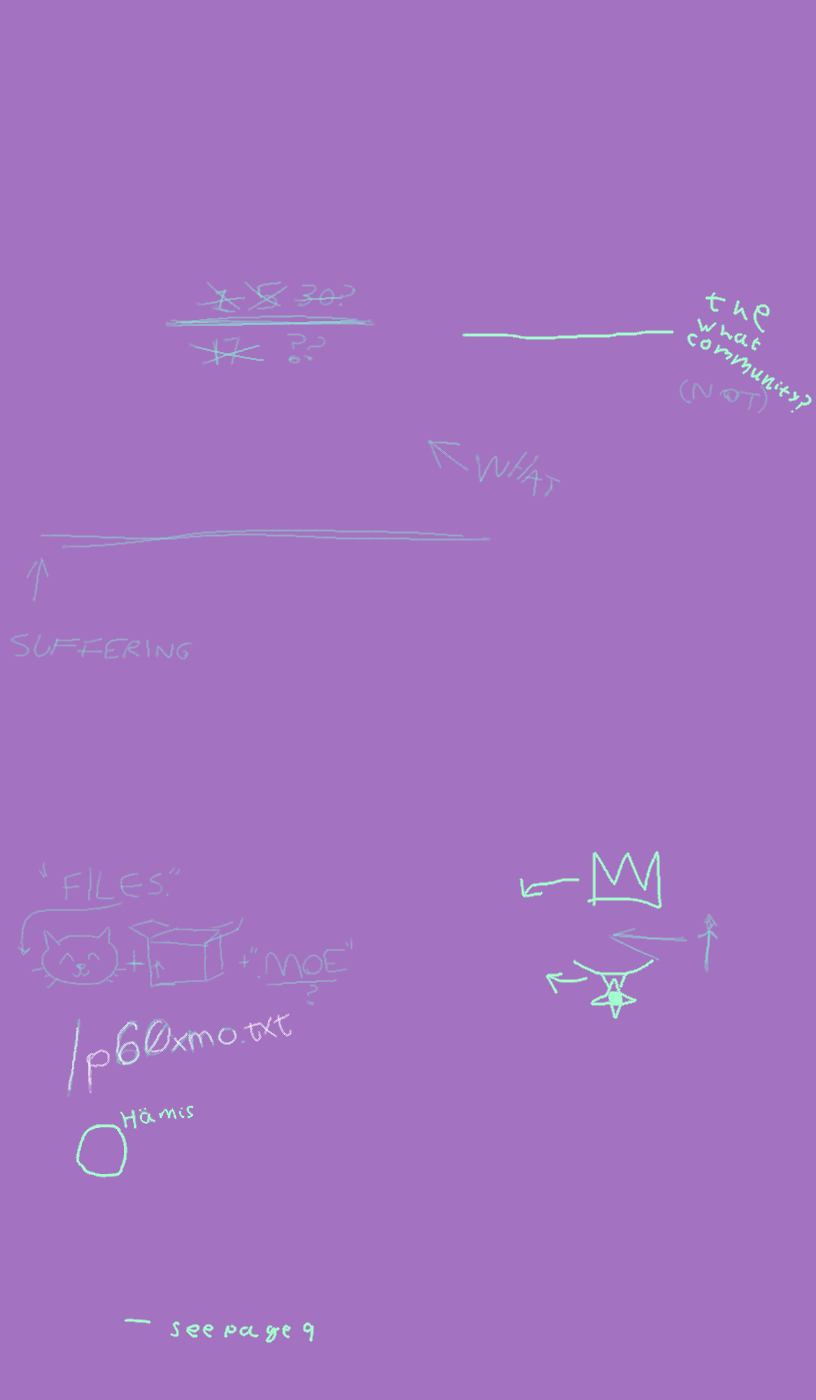 1 5 30?
17 ??
the
what
community?
(NOT)
WHAT
SUFFERING
"FILES."
+ + ".MOE"
?
/p60xmo.txt
Hämis
— see page 9